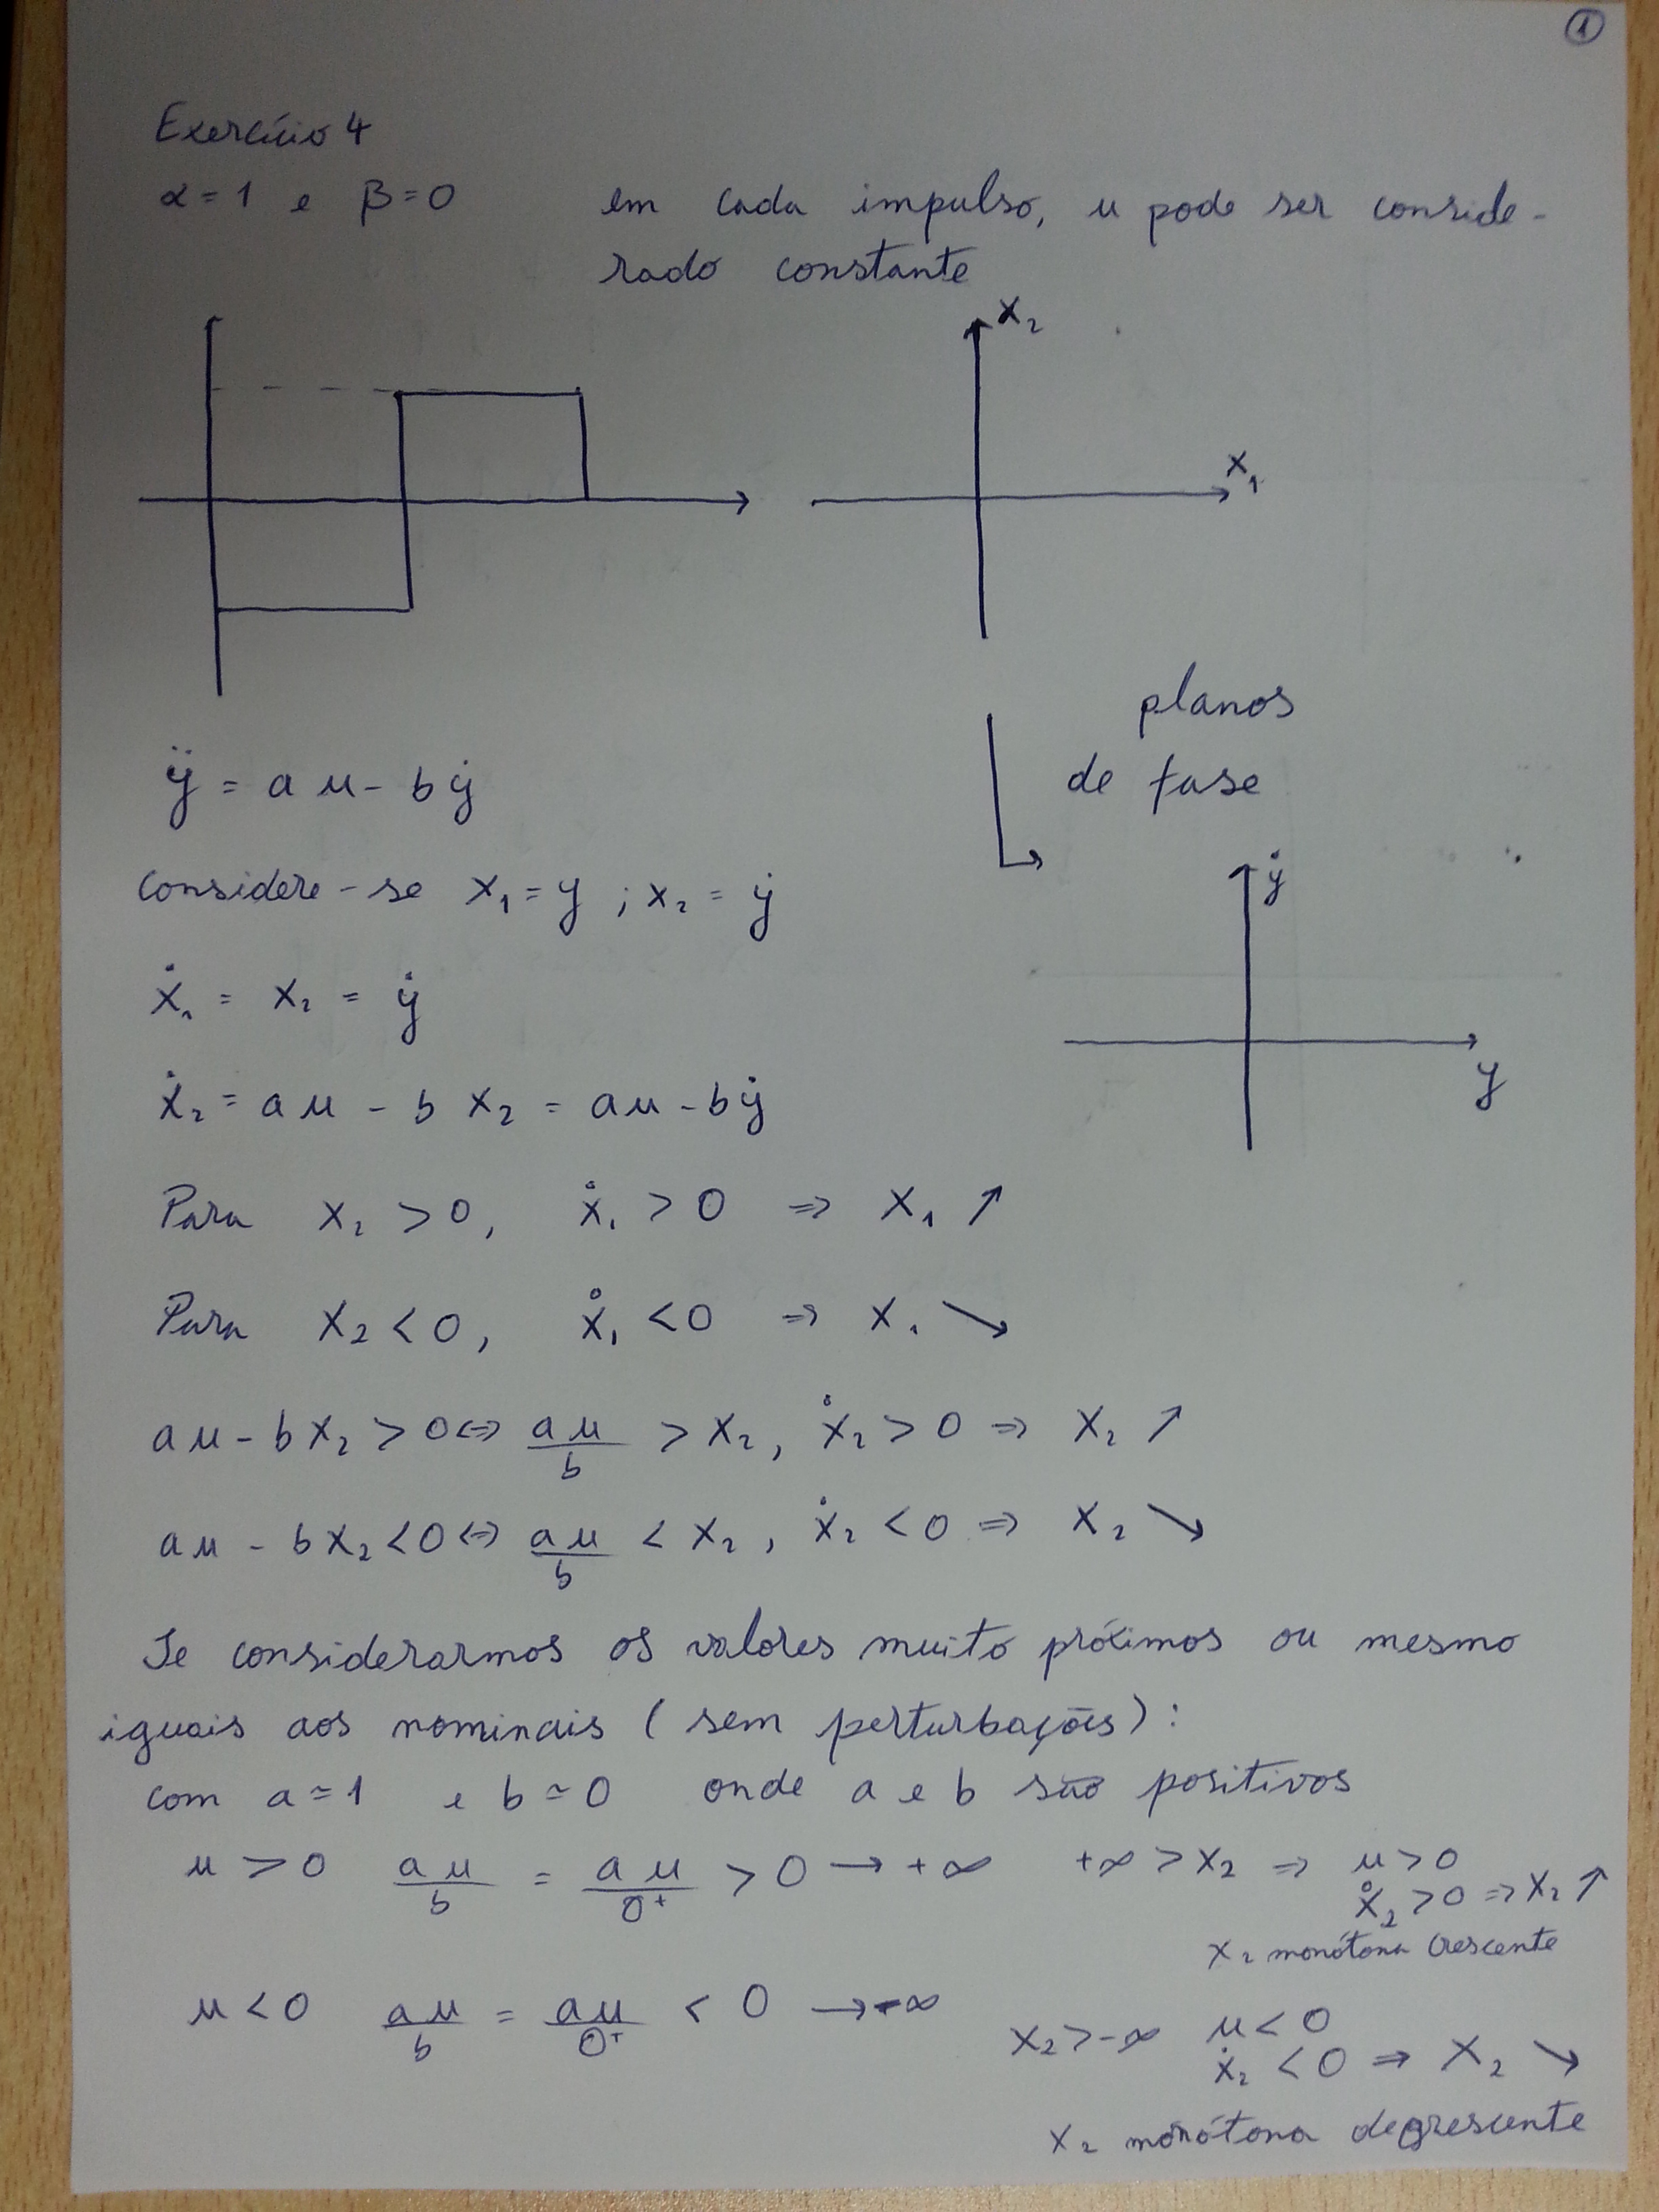 ①
Exercício 4
α = 1 e β = 0
em cada impulso, u pode ser conside-
rado constante
x₂
x₁
planos
de fase
ÿ = a u - b ẏ
considere-se x₁ = y ; x₂ = ẏ
ẏ
ẋ₁ = x₂ = ẏ
y
ẋ₂ = a u - b x₂ = a u - b ẏ
Para x₂ > 0, ẋ₁ > 0 ⇒ x₁ ↗
Para x₂ < 0, ẋ₁ < 0 ⇒ x₁ ↘
a u - b x₂ > 0 ⇔ a u / b > x₂, ẋ₂ > 0 ⇒ x₂ ↗
a u - b x₂ < 0 ⇔ a u / b < x₂, ẋ₂ < 0 ⇒ x₂ ↘
Se considerarmos os valores muito próximos ou mesmo
iguais aos nominais (sem perturbações):
com a ≃ 1 e b ≃ 0 onde a e b são positivos
u > 0 a u / b = a u / 0⁺ > 0 → +∞ +∞ > x₂ ⇒ u > 0
ẋ₂ > 0 ⇒ x₂ ↗
x₂ monótona crescente
u < 0 a u / b = a u / 0⁺ < 0 → -∞
x₂ > -∞ u < 0
ẋ₂ < 0 ⇒ x₂ ↘
x₂ monótona decrescente